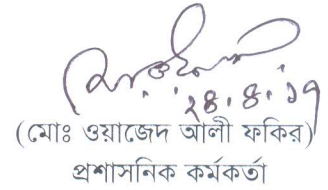 ২৪.৪.১৭
(মোঃ ওয়াজেদ আলী ফকির)
প্রশাসনিক কর্মকর্তা